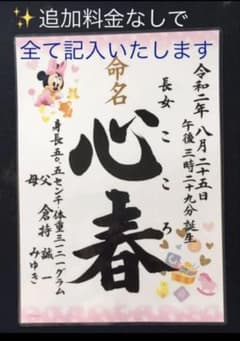 ✨追加料金なしで
全て記入いたします
命名
令和二年 八月二十五日
午後三時二十九分 誕生
長女 こころ
心春
身長五〇.五センチ 体重三一二一グラム
父 倉持 誠一
母 みゆき